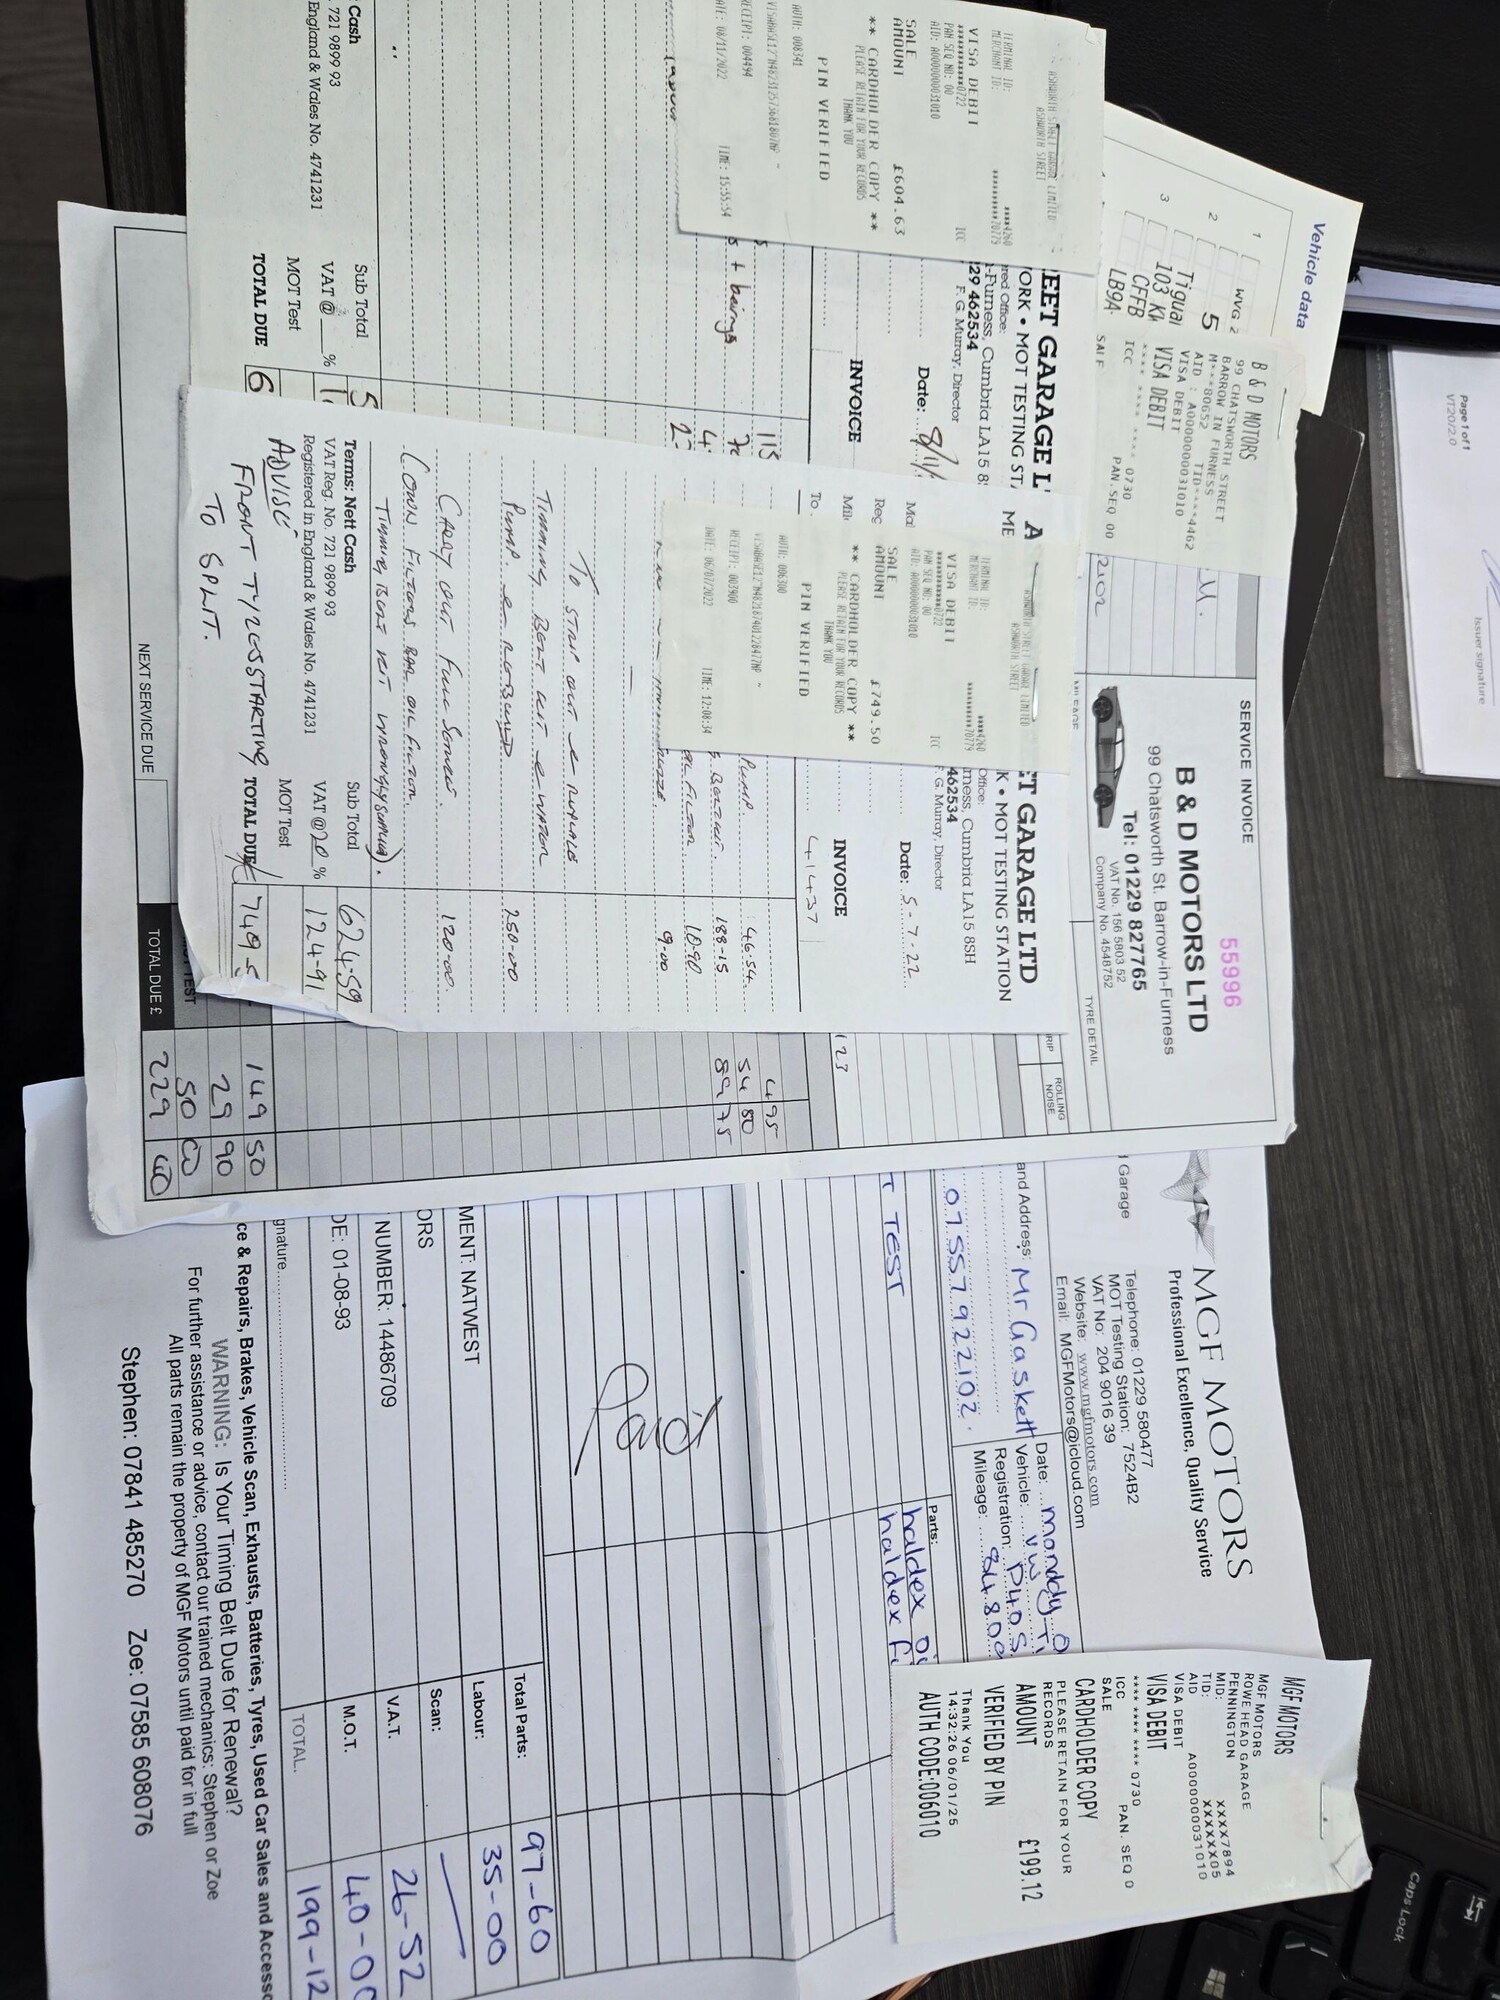 Vehicle data
1
2
3
WVG 2
5
Tiguan
103 KW
CFFB
LB9A
Page 1 of 1
VT20/2.0
Issuer signature
B & D MOTORS
99 CHATSWORTH STREET
BARROW IN FURNESS
M***80652 TID****4462
AID : A0000000031010
VISA DEBIT
VISA DEBIT
**** **** **** 0730
ICC PAN.SEQ 00
SALE
ASHWORTH STREET GARAGE LIMITED
ASHWORTH STREET
TERMINAL ID: ****4260
MERCHANT ID: **********70779
VISA DEBIT ICC
************0722
PAN SEQ NO: 00
AID: A0000000031010
SALE
AMOUNT £604.63
** CARDHOLDER COPY **
PLEASE RETAIN FOR YOUR RECORDS
THANK YOU
PIN VERIFIED
AUTH: 008341
RECEIPT: 004494
DATE: 08/11/2022 TIME: 15:55:54
EET GARAGE L
ORK • MOT TESTING ST
red Office:
-Furness, Cumbria LA15 8
29 462534
F. G. Murray, Director
Date: 8/11/
INVOICE
115
+ beings
Cash
721 9899 93
England & Wales No. 4741231
Sub Total
VAT @ %
MOT Test
TOTAL DUE 6
A
ME
ASHWORTH STREET GARAGE LIMITED
ASHWORTH STREET
TERMINAL ID: ****4260
MERCHANT ID: **********70779
VISA DEBIT ICC
************0722
PAN SEQ NO: 00
AID: A0000000031010
SALE
AMOUNT £749.50
** CARDHOLDER COPY **
PLEASE RETAIN FOR YOUR RECORDS
THANK YOU
PIN VERIFIED
AUTH: 006300
RECEIPT: 003900
DATE: 06/07/2022 TIME: 12:08:34
T GARAGE LTD
K • MOT TESTING STATION
Office:
rness, Cumbria LA15 8SH
462534
F. G. Murray, Director
Date: 5-7-22
INVOICE
To 41437
PUMP. 46.54
BELT KIT. 188-15
OIL FILTER 18-90
9-00
TO STRIP OUT & REPLACE
TIMING BELT KIT & WATER
PUMP. & REBUILD 250-00
CARRY OUT FULL SERVICE. 120-00
(OWN FILTERS BAR OIL FILTER.
TIMING BELT KIT WRONGLY SUPPLIED).
Terms: Nett Cash
VAT Reg. No. 721 9899 93
Registered in England & Wales No. 4741231
Sub Total 624-59
VAT @ 20 % 124-91
MOT Test
TOTAL DUE 749-5
ADVISE
FRONT TYRES STARTING
TO SPLIT.
SERVICE INVOICE
55996
B & D MOTORS LTD
99 Chatsworth St. Barrow-in-Furness
Tel: 01229 827765
VAT No. 156 5803 52
Company No. 4548752
M.
2102
MILEAGE
TYRE DETAIL
GRIP
ROLLING
NOISE
123
4 95
54 80
89 75
149 50
29 90
TEST 50 00
NEXT SERVICE DUE
TOTAL DUE £ 229 40
MGF MOTORS
Professional Excellence, Quality Service
Garage
Telephone: 01229 580477
MOT Testing Station: 7524B2
VAT No: 204 9016 39
Website: www.mgfmotors.com
Email: MGFMotors@icloud.com
and Address: Mr Gaskett
07557922102.
Date: monday
Vehicle: VW Ti
Registration: P40S
Mileage: 84800
T TEST
Parts:
haldex oi
haldex fi
Paid
MENT: NATWEST
ORS
NUMBER: 14486709
DE: 01-08-93
gnature
Total Parts: 97-60
Labour: 35-00
Scan:
V.A.T. 26-52
M.O.T. 40-00
TOTAL. 199-12
ce & Repairs, Brakes, Vehicle Scan, Exhausts, Batteries, Tyres, Used Car Sales and Accesso
WARNING: Is Your Timing Belt Due for Renewal?
For further assistance or advice, contact our trained mechanics: Stephen or Zoe
All parts remain the property of MGF Motors until paid for in full
Stephen: 07841 485270 Zoe: 07585 608076
MGF MOTORS
MGF MOTORS
ROWE HEAD GARAGE
PENNINGTON
MID: XXXX7894
TID: XXXXXX05
AID A0000000031010
VISA DEBIT
VISA DEBIT
**** **** **** 0730
ICC PAN. SEQ 0
SALE
CARDHOLDER COPY
PLEASE RETAIN FOR YOUR
RECORDS
AMOUNT £199.12
VERIFIED BY PIN
Thank You
14:32:26 06/01/25
AUTH CODE:006010
Caps Lock